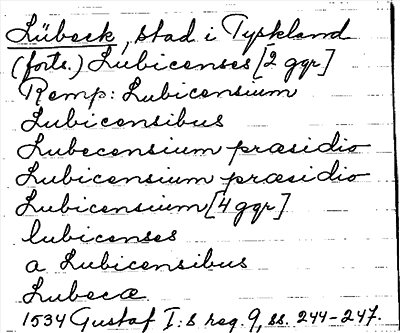 Lübeck, stad i Tyskland
(forts.) Lubicenses [2 ggr]
Remp: Lubicensium
Lubicensibus
Lubecensium præsidio
Lubicensium præsidio
Lubicensium [4 ggr]
lubicenses
a Lubicensibus
Lubecæ
1534 Gustaf I:s reg. 9, ss. 244-247.